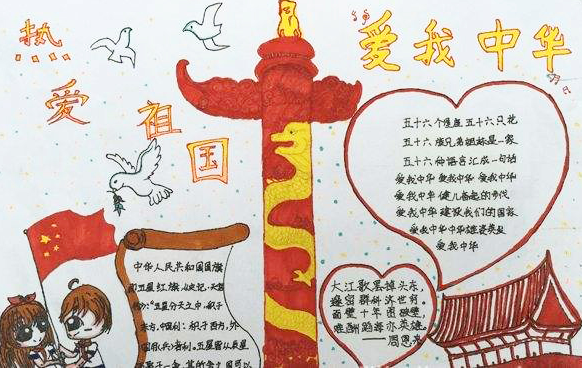 热
爱
祖
国
爱我中华
五十六个星座五十六只花
五十六族兄弟姐妹是一家
五十六种语言汇成一句话
爱我中华 爱我中华 爱我中华
爱我中华 健儿奋起的步伐
爱我中华 建设我们的国家
爱我中华中华雄姿英发
爱我中华
中华人民共和国国旗
五星红旗,史记·天官
书:“五星分天之中,积于
东方,中国利;积于西方,外
国用(兵)者利。五星皆从辰星
大江歌罢掉头东,
邃密群科济世穷。
面壁十年图破壁,
难酬蹈海亦英雄。
——周恩来